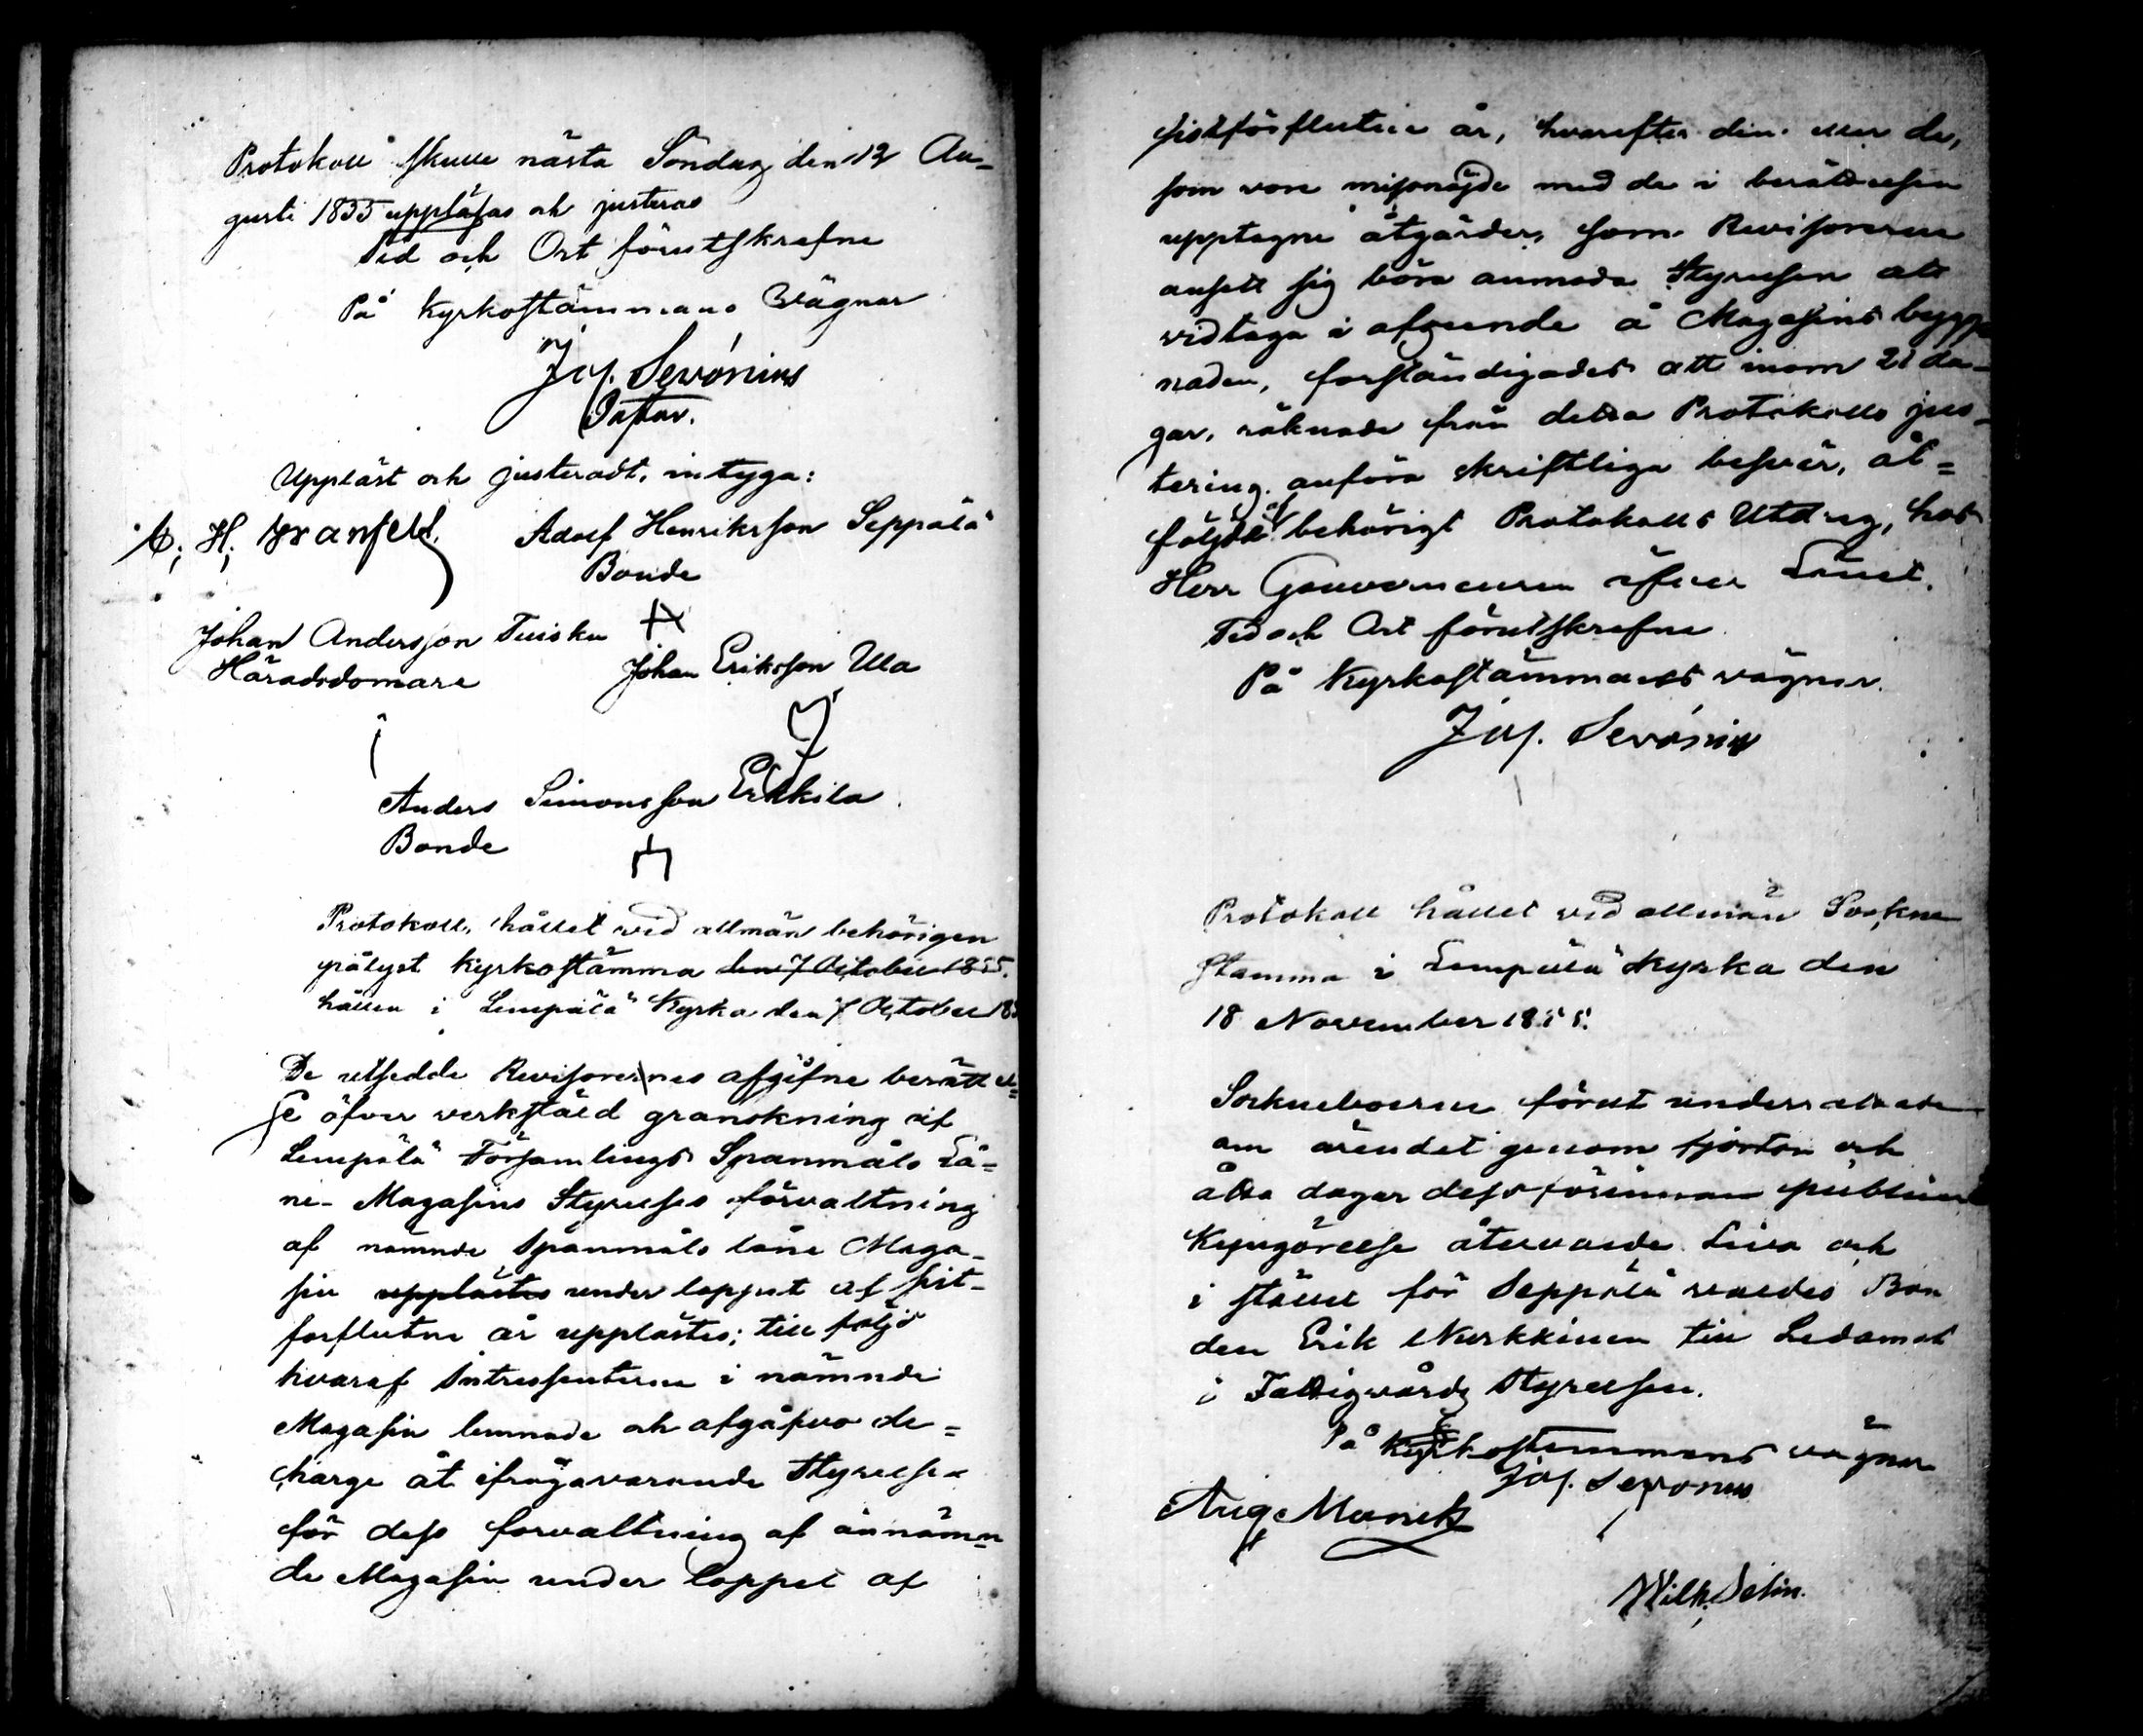 Protokoll skulle nästa Söndag den 12 Au-
gusti 1855 uppläsas och justeras
Tid och Ort förutskrefne
På Kyrkostämmans Vägnar
Jos. Sevónius
Pastor.
Uppläst och justeradt, intyga:
C. H. Granfelt
Adolf Henriksson Seppälä
Bonde
Johan Andersson Tuisku
Häradsdomare
Johan Eriksson Ula
Anders Simonsson Erkkila
Bonde
Protokoll, hållet vid allmän behörigen
pålyst Kyrkostämma den 7 October 1855.
hållen i Lempälä Kyrka den 7 October 18
De utsedde Revisorernes afgifne berättel-
se öfver verkstäld granskning af
Lempälä Församlings Spanmåls Lå-
ne- Magasins Styrelses förvaltning
af nämnde Spanmåls låne Maga-
sin upplästes under loppet af sist-
forflutne år upplästes; till följd
hvaraf Intressenterne i nämnde
Magasin lemnade och afgåfvo de=
charge åt ifrågavarande Styrelse
för dess forvaltning af ännämn-
de Magasin under loppet af
sistförflutne år, hvarefter den eller de,
som vore missnöjde med de i berättelsen
upptagne åtgärder, som Revisorerne
ansett sig böra anmoda Styrelsen att
vidtaga i afseende å Magasins bygg-
naden, forständigades att inom 21 da-
gar, räknade från detta Protokolls jus-
tering, anföra skriftliga besvär, åt=
följde af behörigt Protokolls Utdrag, hos
Herr Gouverneuren öfver Länet.
Tid och Ort förutskrefne
På Kyrkostämmans vägnar.
Jos. Sevónius
Protokoll hållet vid allmän Sockne
stämma i Lempälä Kyrka den
18 November 1855.
Sockneboerne förut underrättade
om ärendet genom fjorton och
åtta dagar dessförinnan publicerad
Kungörelse återvalde Liira och
i stället för Seppälä valdes Bon
den Erik Nurkkinen till Ledamot
i Fattigvårds Styrelsen.
På Kyrkostämmans vägnar
Jos. Sevonius
Aug. Munck
Wilh. Selin.